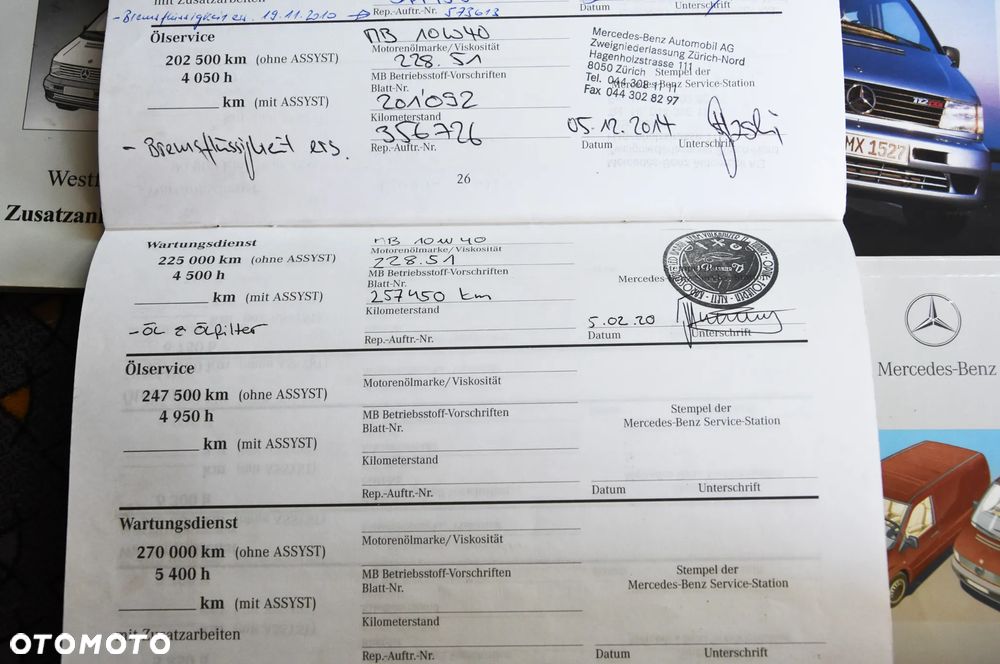 mit Zusatzarbeiten
- Bremsflüssigkeit ers. 19.11.2010
Rep.-Auftr.-Nr. 573613
Datum
Unterschrift
Ölservice
MB 10W40
Motorenölmarke/Viskosität
202 500 km (ohne ASSYST)
4 050 h
228.51
MB Betriebsstoff-Vorschriften
Blatt-Nr.
km (mit ASSYST)
201'092
Kilometerstand
- Bremsflüssigkeit ers.
356726
Rep.-Auftr.-Nr.
Mercedes-Benz Automobil AG
Zweigniederlassung Zürich-Nord
Hagenholzstrasse 111
8050 Zürich
Stempel der
Tel. 044 308 11 11
Mercedes-Benz Service-Station
Fax 044 302 82 97
05.12.2014
Datum
Unterschrift
26
Wartungsdienst
MB 10W40
Motorenölmarke/Viskosität
225 000 km (ohne ASSYST)
4 500 h
228.51
MB Betriebsstoff-Vorschriften
Blatt-Nr.
km (mit ASSYST)
257450 km
Kilometerstand
- Öl & Ölfilter
Rep.-Auftr.-Nr.
5.02.20
Datum
Unterschrift
Ölservice
Motorenölmarke/Viskosität
247 500 km (ohne ASSYST)
4 950 h
MB Betriebsstoff-Vorschriften
Blatt-Nr.
Stempel der
Mercedes-Benz Service-Station
km (mit ASSYST)
Kilometerstand
Rep.-Auftr.-Nr.
Datum
Unterschrift
Wartungsdienst
Motorenölmarke/Viskosität
270 000 km (ohne ASSYST)
5 400 h
MB Betriebsstoff-Vorschriften
Blatt-Nr.
Stempel der
Mercedes-Benz Service-Station
km (mit ASSYST)
Kilometerstand
mit Zusatzarbeiten
Rep.-Auftr.-Nr.
Datum
Unterschrift
Westf
Zusatzan
112 CDI
MX 1527
Mercedes-Benz
OTOMOTO